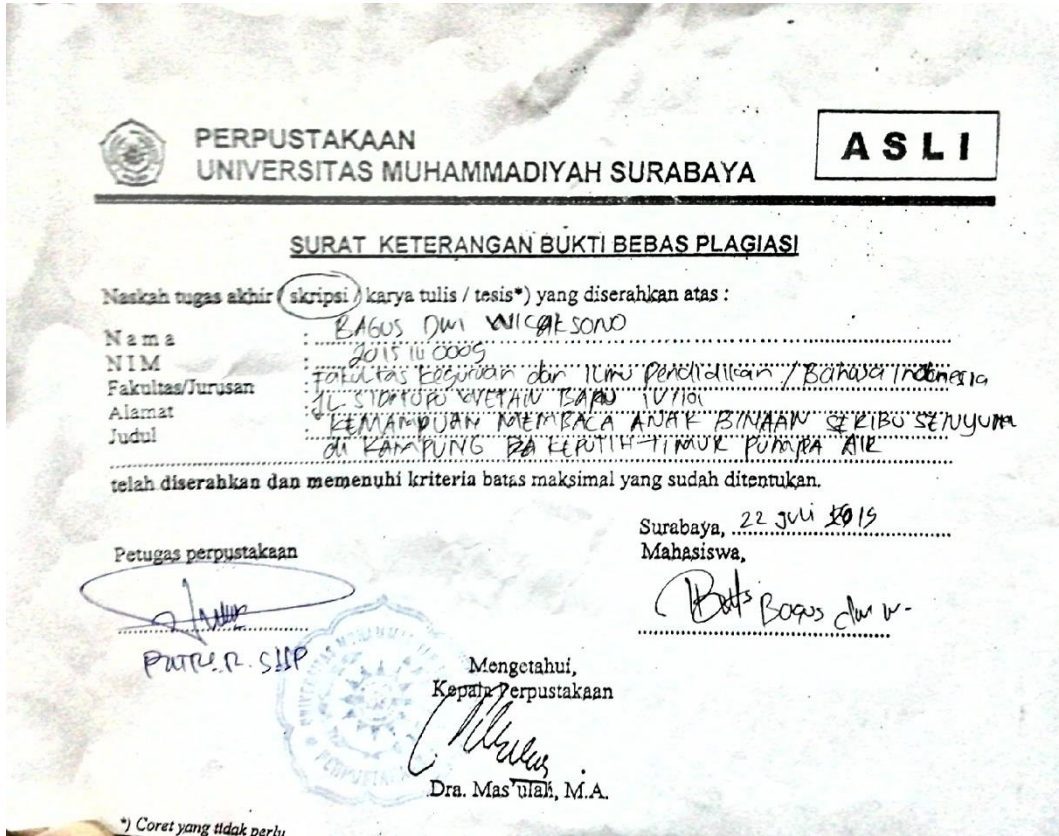 PERPUSTAKAAN
UNIVERSITAS MUHAMMADIYAH SURABAYA
ASLI
SURAT KETERANGAN BUKTI BEBAS PLAGIASI
Naskah tugas akhir ( skripsi / karya tulis / tesis*) yang diserahkan atas :
Nama : BAGUS DWI WICAKSONO
NIM :
Fakultas/Jurusan : Fakultas Keguruan dan Ilmu Pendidikan / Bahasa Indonesia
Alamat : JL. WETAN
Judul : KEMAMPUAN MEMBACA ANAK BINAAN SERIBU SENYUM
di KAMPUNG KEPUTIH-TIMUR POMPA AIR
telah diserahkan dan memenuhi kriteria batas maksimal yang sudah ditentukan.
Surabaya, 22 Juli 2019
Petugas perpustakaan
Mahasiswa,
Bagus
Mengetahui,
Kepala Perpustakaan
Dra. Mas'ulah, M.A.
*) Coret yang tidak perlu